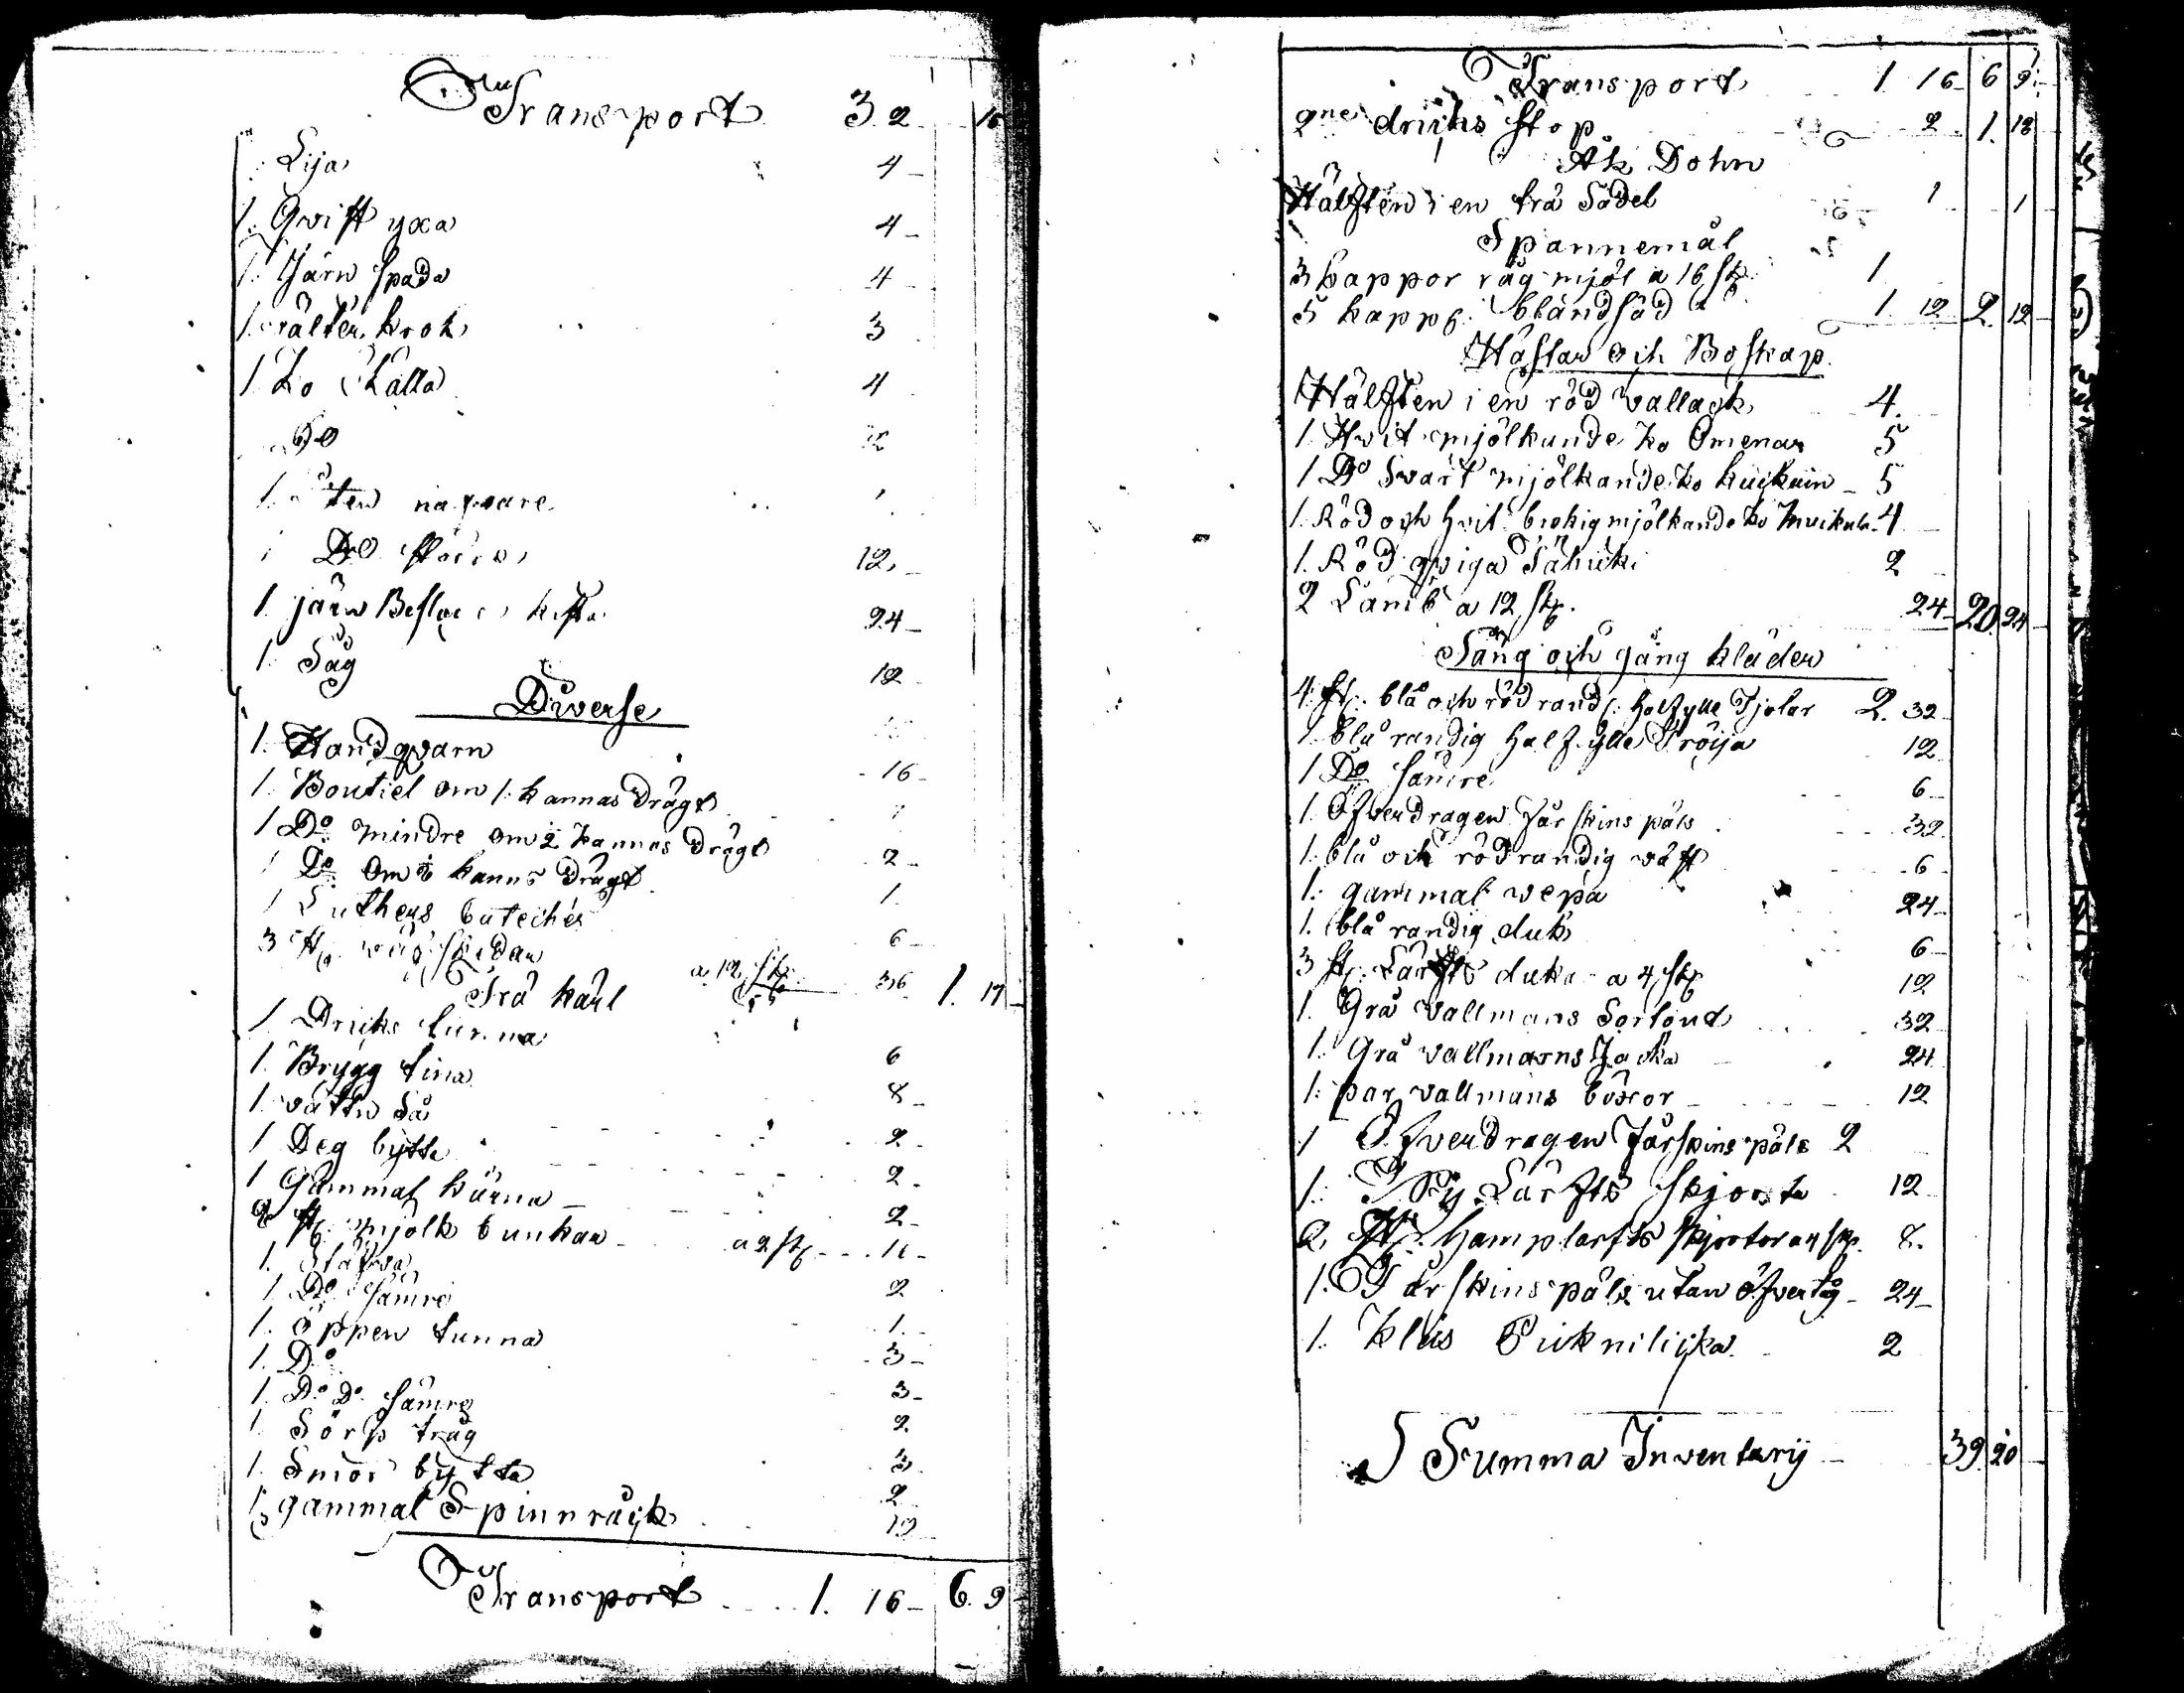 Transport 32 16
Lija 4
1. Qvist yxa 4
1. Järn spada 4
1. krok 3
1. Ko skälla 4
Do
1. navare
1 Do 12
1. järn Beslag kista 24
1. Såg 12
Diverse
1. Handqvarn 16
1. Boutiel om 1. kannas drägt
1 Do mindre om 2 kannas drägt 2
1 Do om kanns drägt 1.
1 Luthers Cateches 6
3 st. skidor a 12 sk. 36 1. 17
Trä kärl
1. Dricks tunna 6
1. Brygg tina 8
1. vattn så 2
1 Deg bytta 2
1 Gammal kärna 2
st. mjölk bunkar a 2 sk.
1. Stäfva 2
1 Do sämre 1.
1. öppen tunna 3
1. Do 3
1. Do Do sämre 2
1. Sörp tråg 3
1. Smör bytta 2
1. gammal Spinnråck
Transport 1. 16 6. 9
Transport 1 16 6 9
2ne dricks stop 2 1. 18
Åk Dohn
Hälften i en trä Sadel 1 1
Spannemål
3 kappor råg mjöl a 16 sk. 1
5 kapp. blandsäd 1 12 2. 12
Hästar och Boskap.
Hälften i en röd vallack 4.
1. Hvit mjölkande ko Omena 5
1 Do Svart mjölkande ko 5
1. Röd och hvit brokig mjölkande ko 4
1. Röd qviga Tähicki 2
2 Lamb a 12 sk. 24 20. 24
Säng och gång kläder
4. st. blå och röd rand. halfylle Tjolar 2. 32
1. blå randig halfylle Tröija 12
1 Do sämre 6
1. Öfverdragen fårskins päls 32
1. blå och röd randig väst 6
1. gammal vepa 24
1. blå randig duk 6
3 st. Lärfts dukar a 4 sk. 12
1. Grå vallmans Sortout 32
1. Grå vallmans Jacka 24
1. par vallmans böxor 12
1 Öfverdragen fårskins päls 2
1. Ny Lärfts skjorta 12
2. st. hamplärfts skjortor a 4 sk. 8.
1. Fårskins päls utan öfvertyg 24
1. Klus 2
Summa Inventarij 39 20